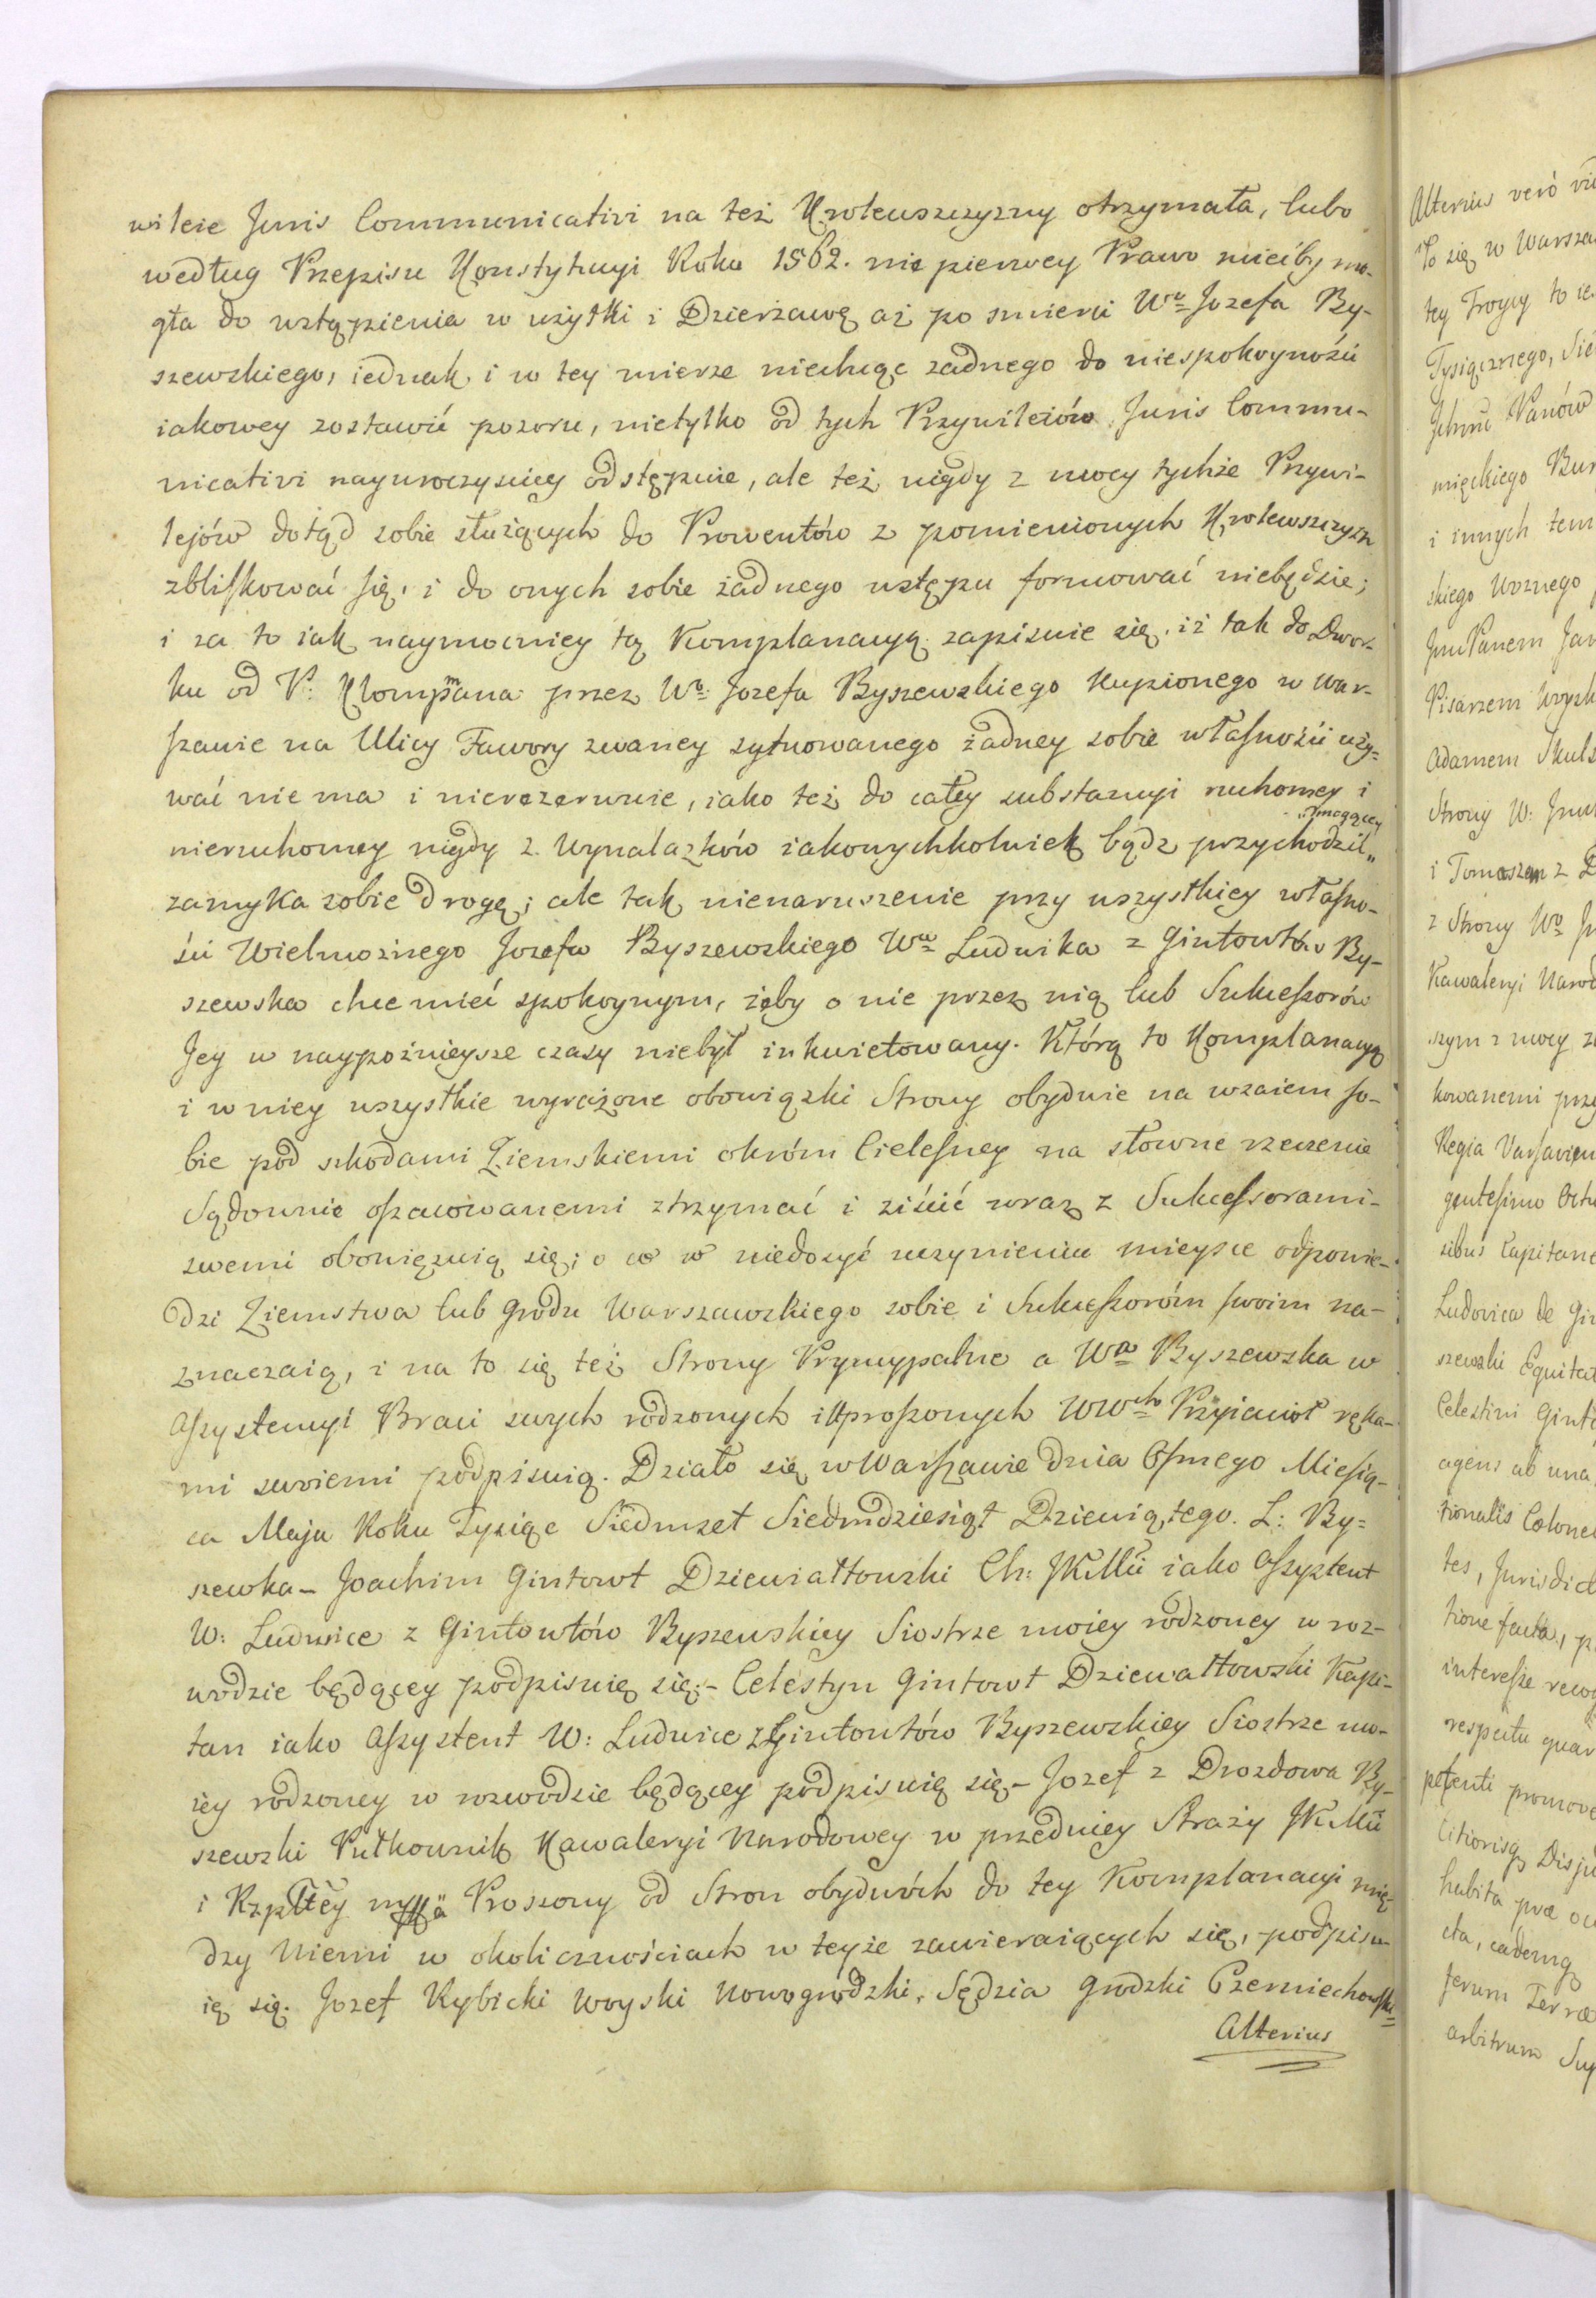 wileie Juris Communicativi na też Krolewszczyzny otrzymała, lubo
według Przepisu Konstytucyi Roku 1562. nie pierwey Prawo miećby mo-
gła do wstąpienia w użytki i Dzierżawę aż po smierci Wgo Jozefa By-
szewskiego, iednak i w tey mierze niechcąc zadnego do niespokoyności
iakowey zostawić pozoru, nietylko od tych Przywileiów Juris Commu-
nicativi nayuroczyściey odstępuie, ale też nigdy z mocy tychże Przywi-
lejów dotąd sobie służących do Prowentów z pomienionych Krolewszczyzn
zbliſkować ſię, i do onych sobie żadnego wstępu formować niebędzie;
i za to iak naymocniey tą Komplanacyą zapisuie się, iż tak do Dwor-
ku od P: Klompmana przez Wo Jozefa Byszewskiego Kupionego w War-
ſzawie na Ulicy Fawory zwaney sytuowanego żadney sobie właſności uży-
wać nie ma i nierezerwuie, iako też do całey substancyi ruchomey i
nieruchomey nigdy z Wynalazków iakowychkolwiek bądz przychodzić „mogącey
zamyka sobie drogę; ale tak nienaruszenie przy wszystkiey właſno-
ści Wielmożnego Jozefa Byszewskiego Wa Ludwika z Gintowtów By-
szewska chce mieć spokoynym, iżby o nie przez nią lub Sukceſsorów
Jey w naypoźnieysze czasy niebył inkwietowany. Którą to Komplanacyą
i w niey wszystkie wyrażone obowiązki Strony obydwie na wzaiem ſo-
bie pod szkodami Ziemskiemi okróm Cieleſney na słowne rzeczenie
Sądownie oſzacowanemi ztrzymać i ziścić wraz z Sukceſsorami
swemi obowięzuią się; o co w niedosyć uczynieniu mieysce odpowie-
dzi Ziemstwa lub Grodu Warszawskiego sobie i Sukceſsoróm ſwoim na-
znaczaią, i na to się też Strony Pryncypalne a Wa Byszewska w
Aſsystencyi Braci swych rodzonych i uproſzonych WWch Przyiaciół ręka-
mi swoiemi podpisuią. Działo się w Warſzawie dnia Oſmego Mieſią-
ca Maja Roku Tysiąc Siedmset Siedmdziesiąt Dziewiątego. L: By=
szewka - Joachim Gintowt Dziewiałtowski Ch: JKMci iako Aſsystent
W: Ludwice z Gintowtów Byszewskiey Siostrze moiey rodzoney w roz-
wodzie będącey podpisuię się. - Celestyn Gintowt Dziewałtowski Kapi-
tan iako Aſsystent W: Ludwice z Gintowtów Byszewskiey Siostrze mo-
iey rodzoney w rozwodzie będącey podpisuię się - Jozef z Drozdowa By-
szewski Pułkownik Kawaleryi Narodowey w przedniey Straży JKMci
i Rzpltey mppa Proszony od Stron obydwóch do tey Komplanacyi mię-
dzy Niemi w okolicznościach w teyże zawieraiących się, podpisu-
ię się. Jozef Rybicki Woyski Nowogrodzki, Sędzia Grodzki Czerniechowski
Alterius
Alterius veró
To się w Warsza
tey Troycy to ie
Tysiącznego, Sie
Ichmć Panów
mięckiego Bur
i innych tem
skiego Woznego
Jmć Panem Jan
Pisarzem
Adamem Skuls
Strony W: Jmć
i Tomaszem z D
z Strony Wo J
Kawaleryi Narod
szym z mocy
kowanemi przy
Regia Varſavien
genteſimo Octu
sibus Capitane
Ludovica de Gin
szewski Equitat
Celestini Ginto
agens ab una
tionalis Colonel
tes, Jurisdict
tione facta, p
intereſse recog
respectu quar
petenti promove
Citiorisq Disju
habita præ oc
cta, eademq
ferum Terræ
arbitrum Sup